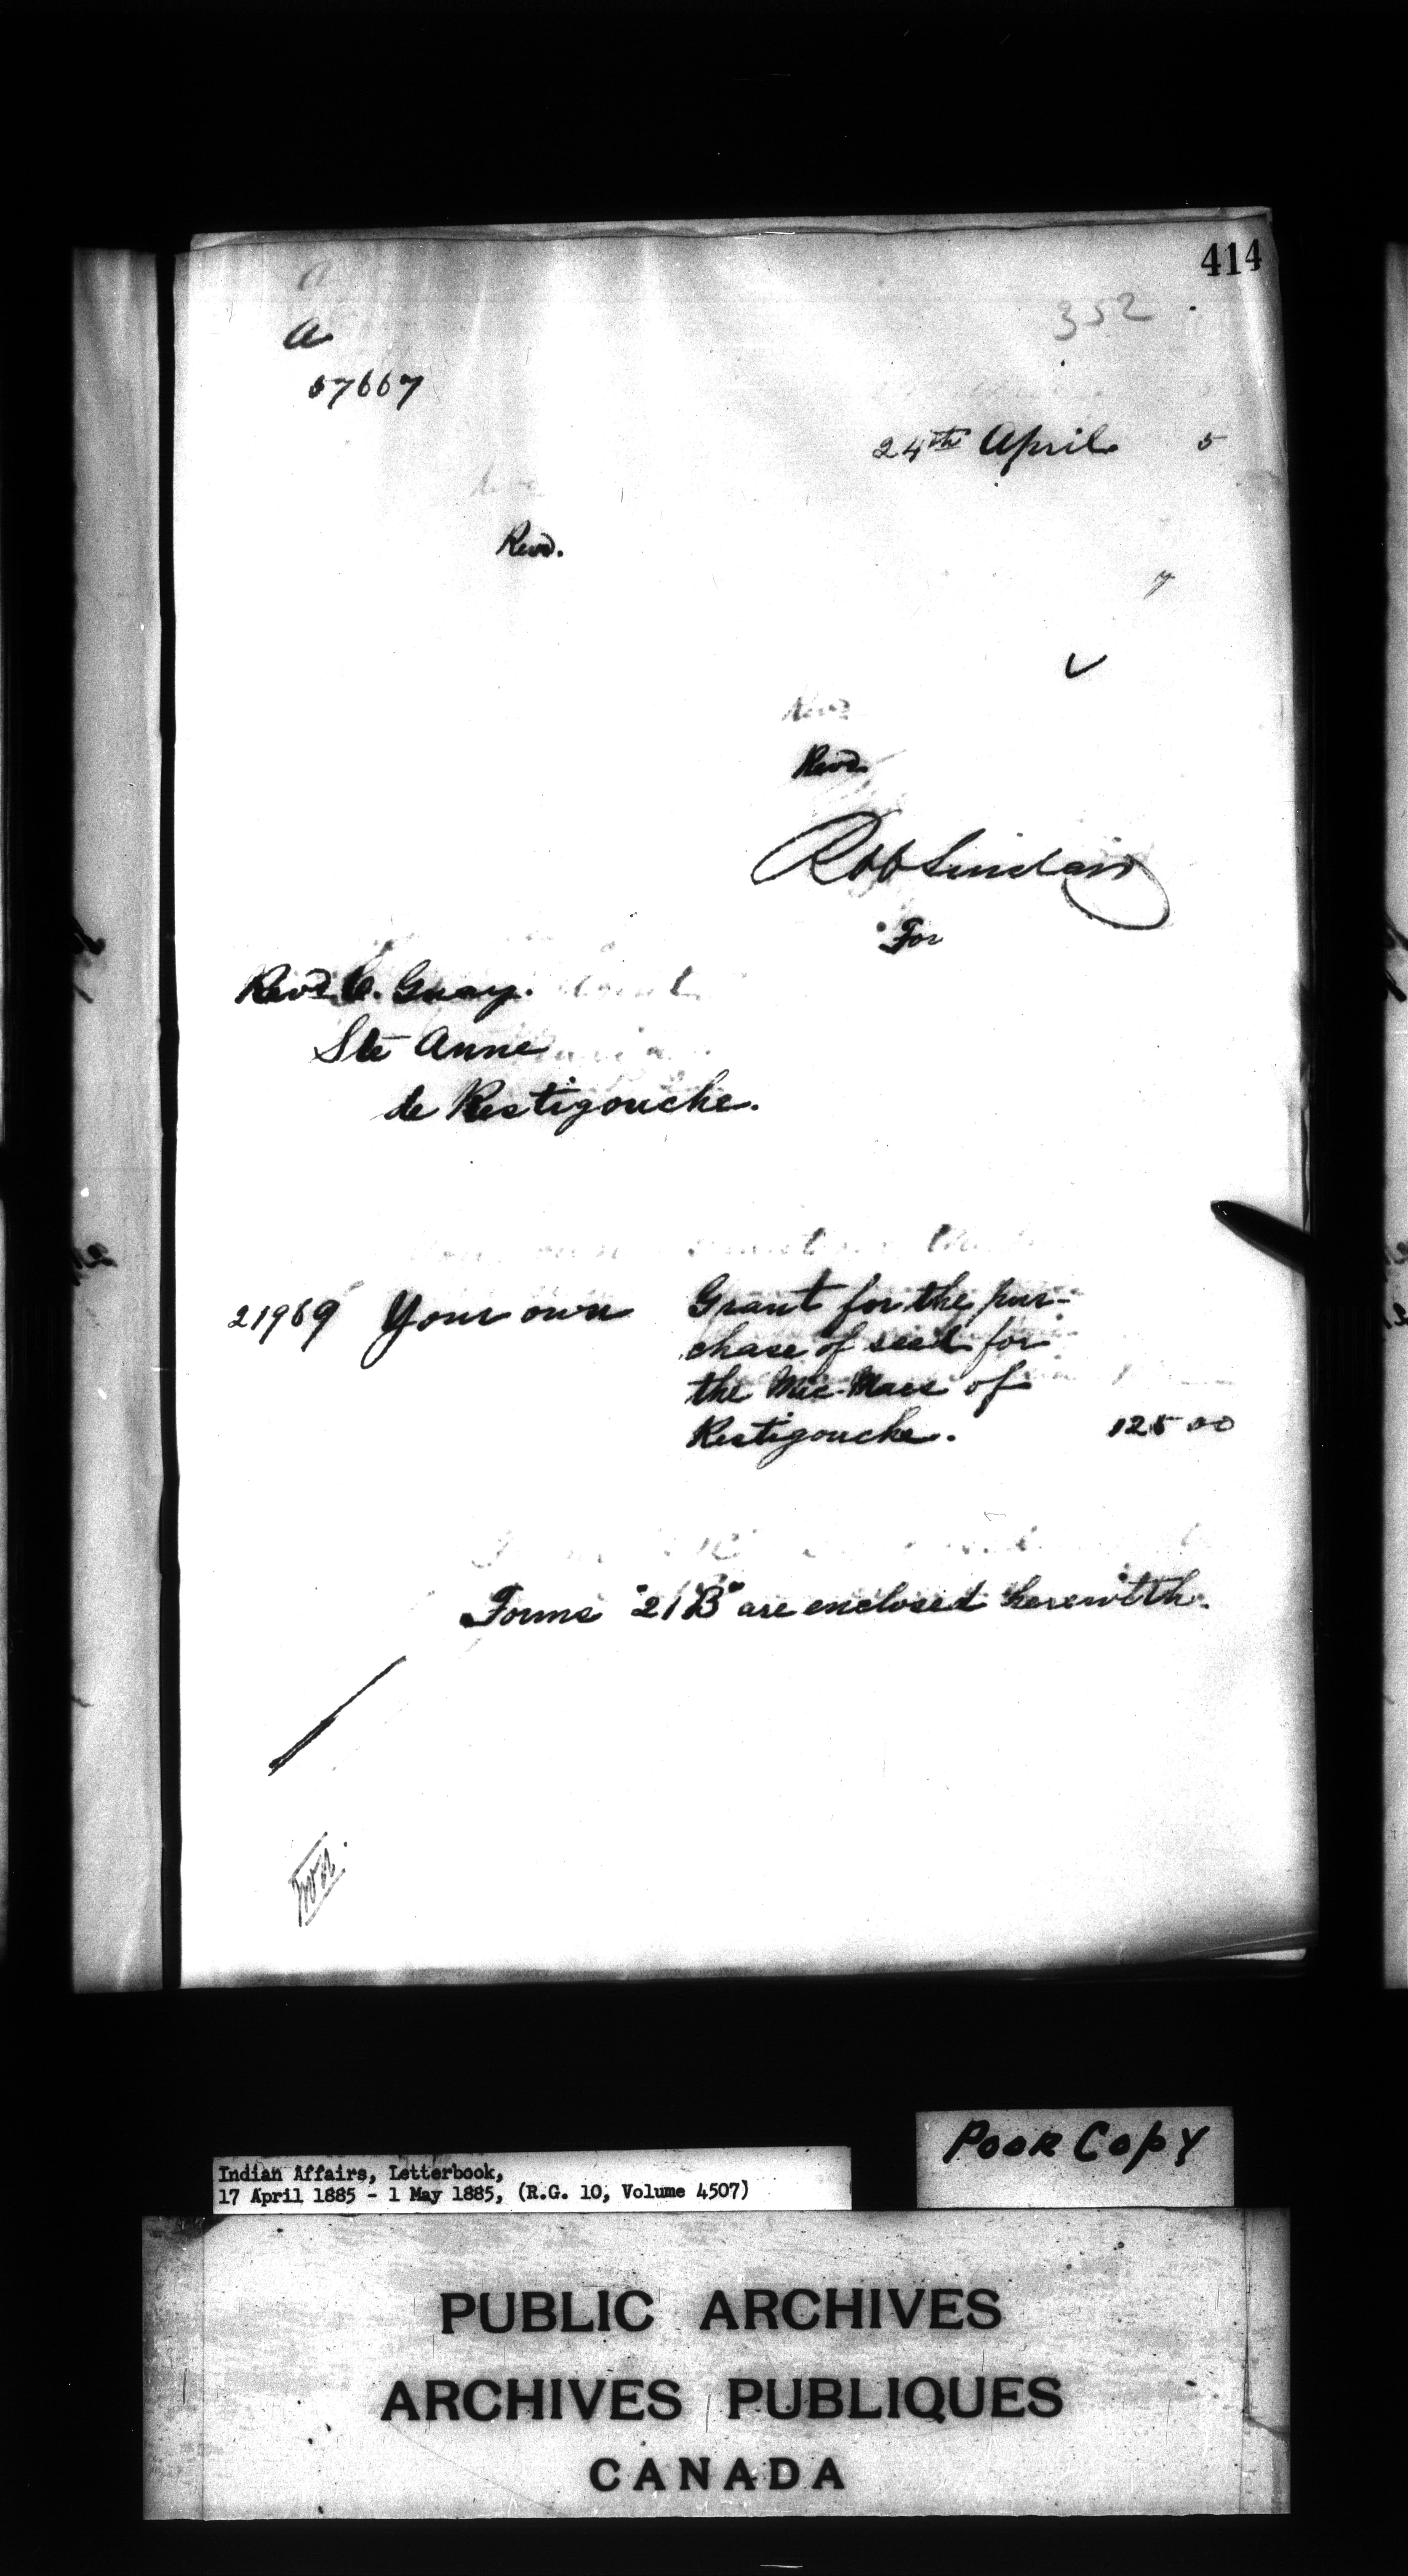 414
352
A
57667
24th April 5
Revd.
Revd.
Robt Sinclair
For
Revd. C. Guay.
Ste Anne
de Restigouche.
21969 Your own Grant for the pur-
chase of seed for
the Mic-Macs of
Restigouche. 125 00
Forms "21B" are enclosed herewith.
POOR COPY
Indian Affairs, Letterbook,
17 April 1885 - 1 May 1885, (R.G. 10, Volume 4507)
PUBLIC ARCHIVES
ARCHIVES PUBLIQUES
CANADA